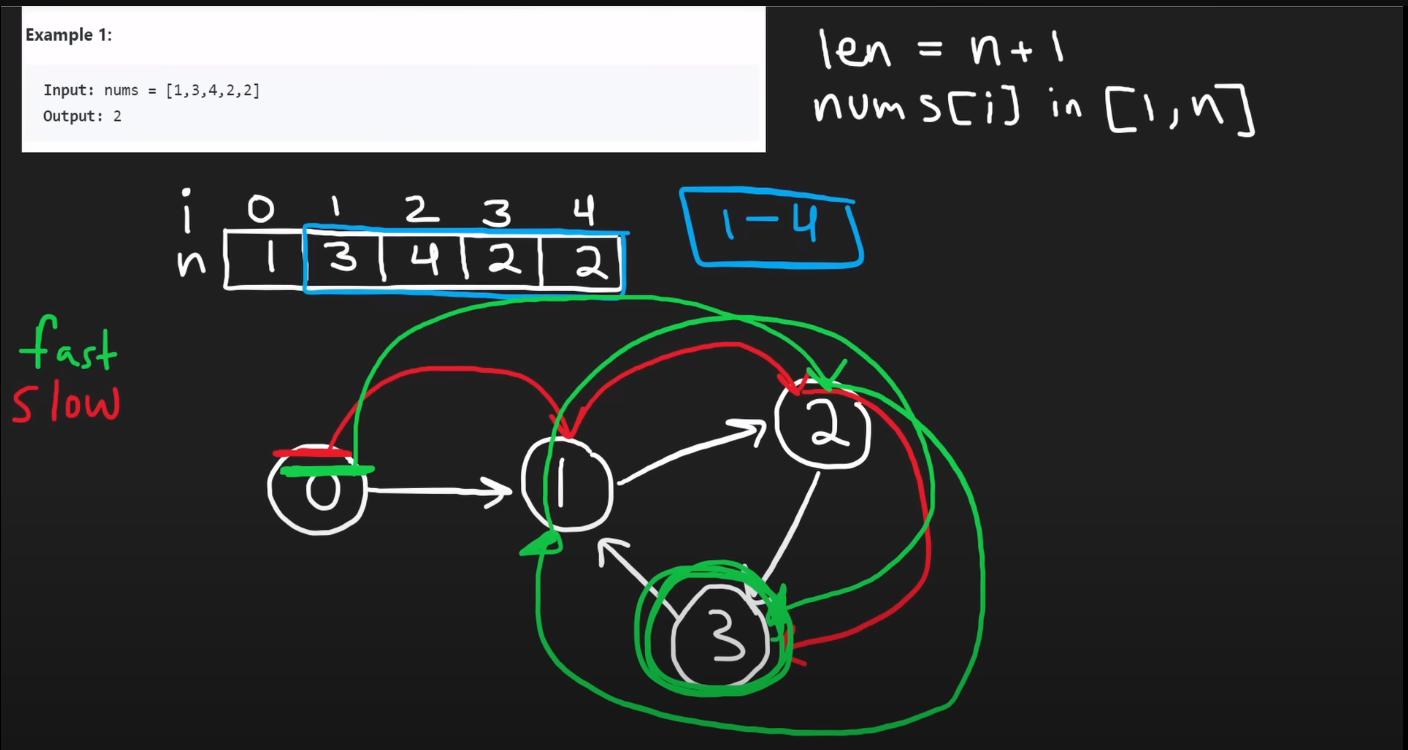 Example 1:
Input: nums = [1,3,4,2,2]
Output: 2
len = n+1
nums[i] in [1,n]
i 0 1 2 3 4
n 1 3 4 2 2
1-4
fast
slow
2
0
1
3